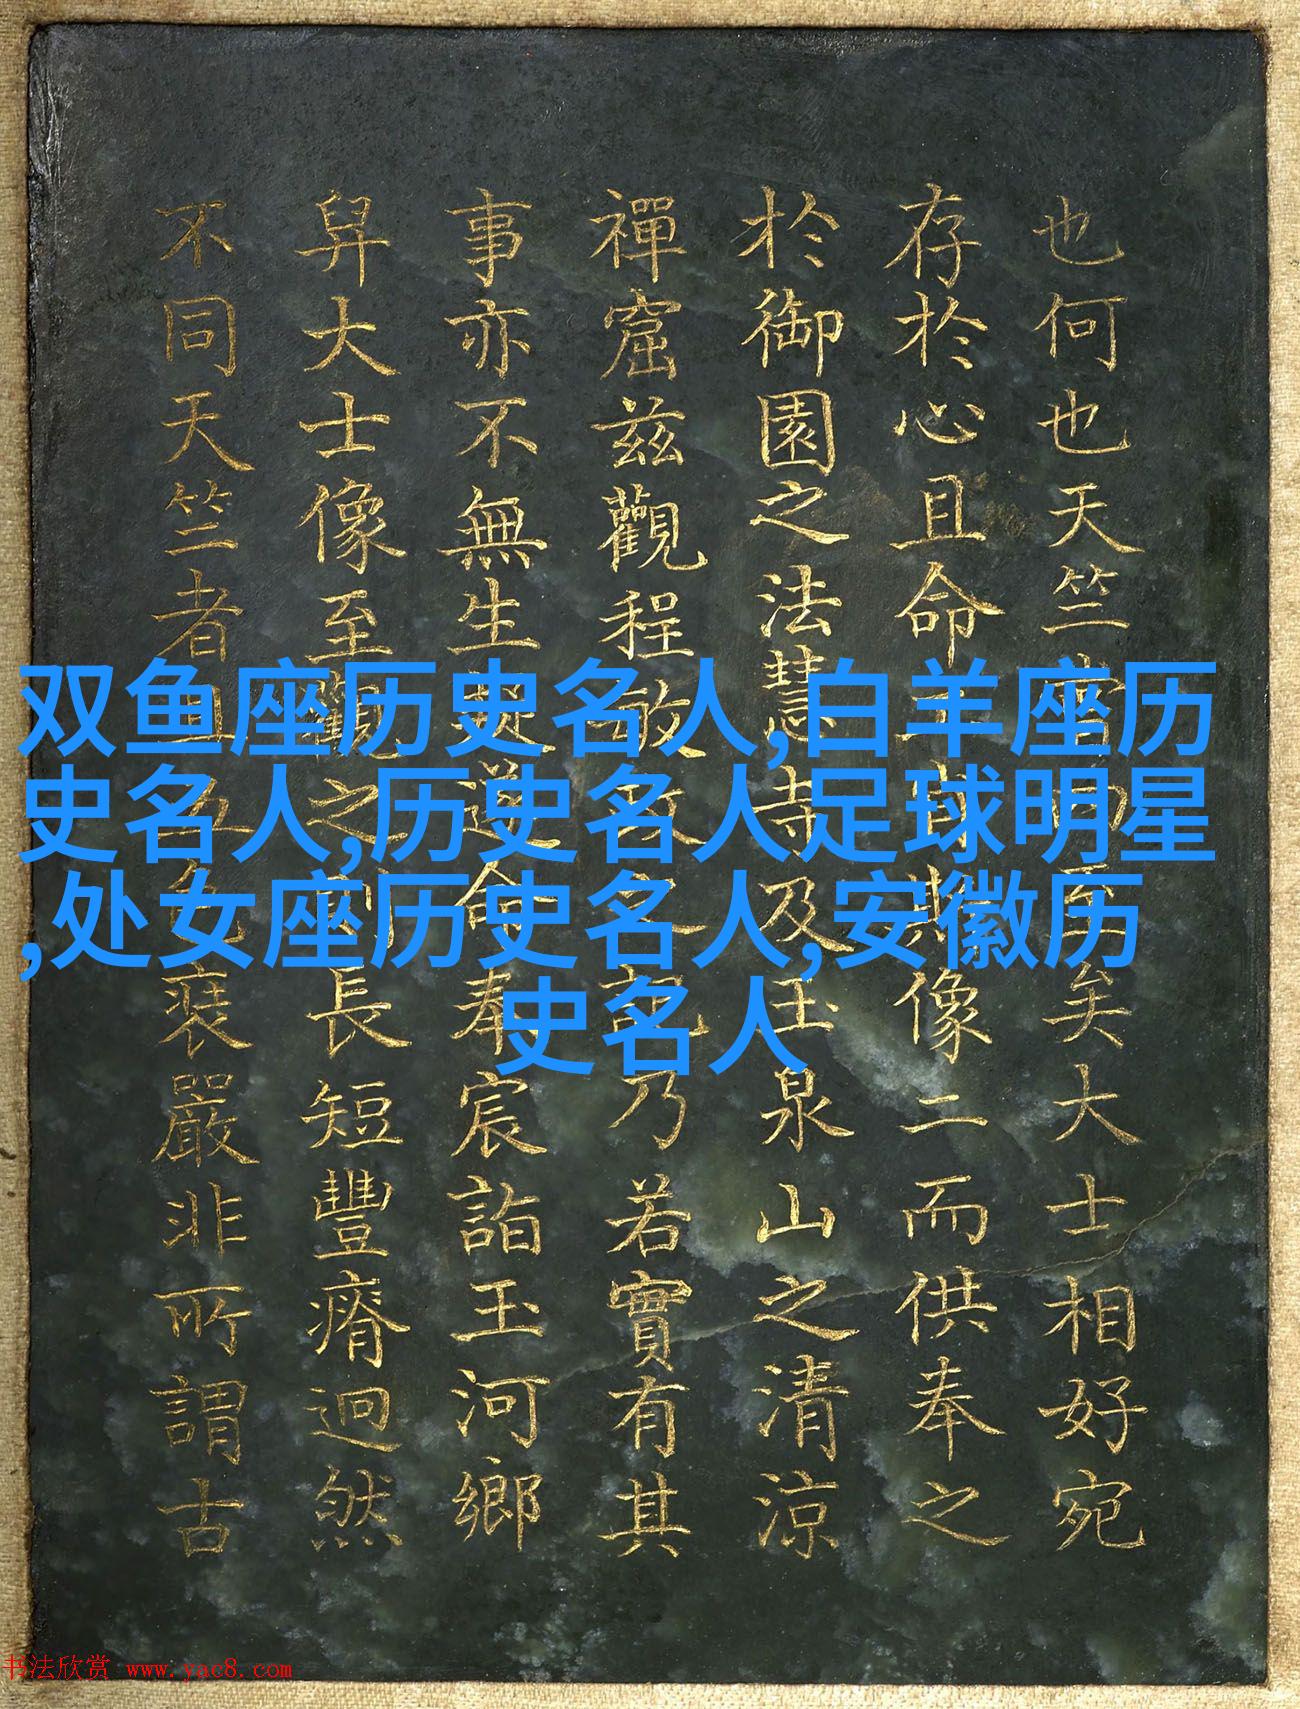 也何也天竺矣大士相好宛
存於心且命其像二而供奉之
於御園之法慧寺及玉泉山之清涼
禪窟茲觀程敏政記乃若實有其
事亦不無生疑遂命奉宸詣玉河鄉
舁大士像至觀之則長短豐瘠迥然
不同天竺者且五色裝嚴非所謂古
双鱼座历史名人,白羊座历
史名人,历史名人足球明星
,处女座历史名人,安徽历
史名人
书法欣赏 www.yac8.com